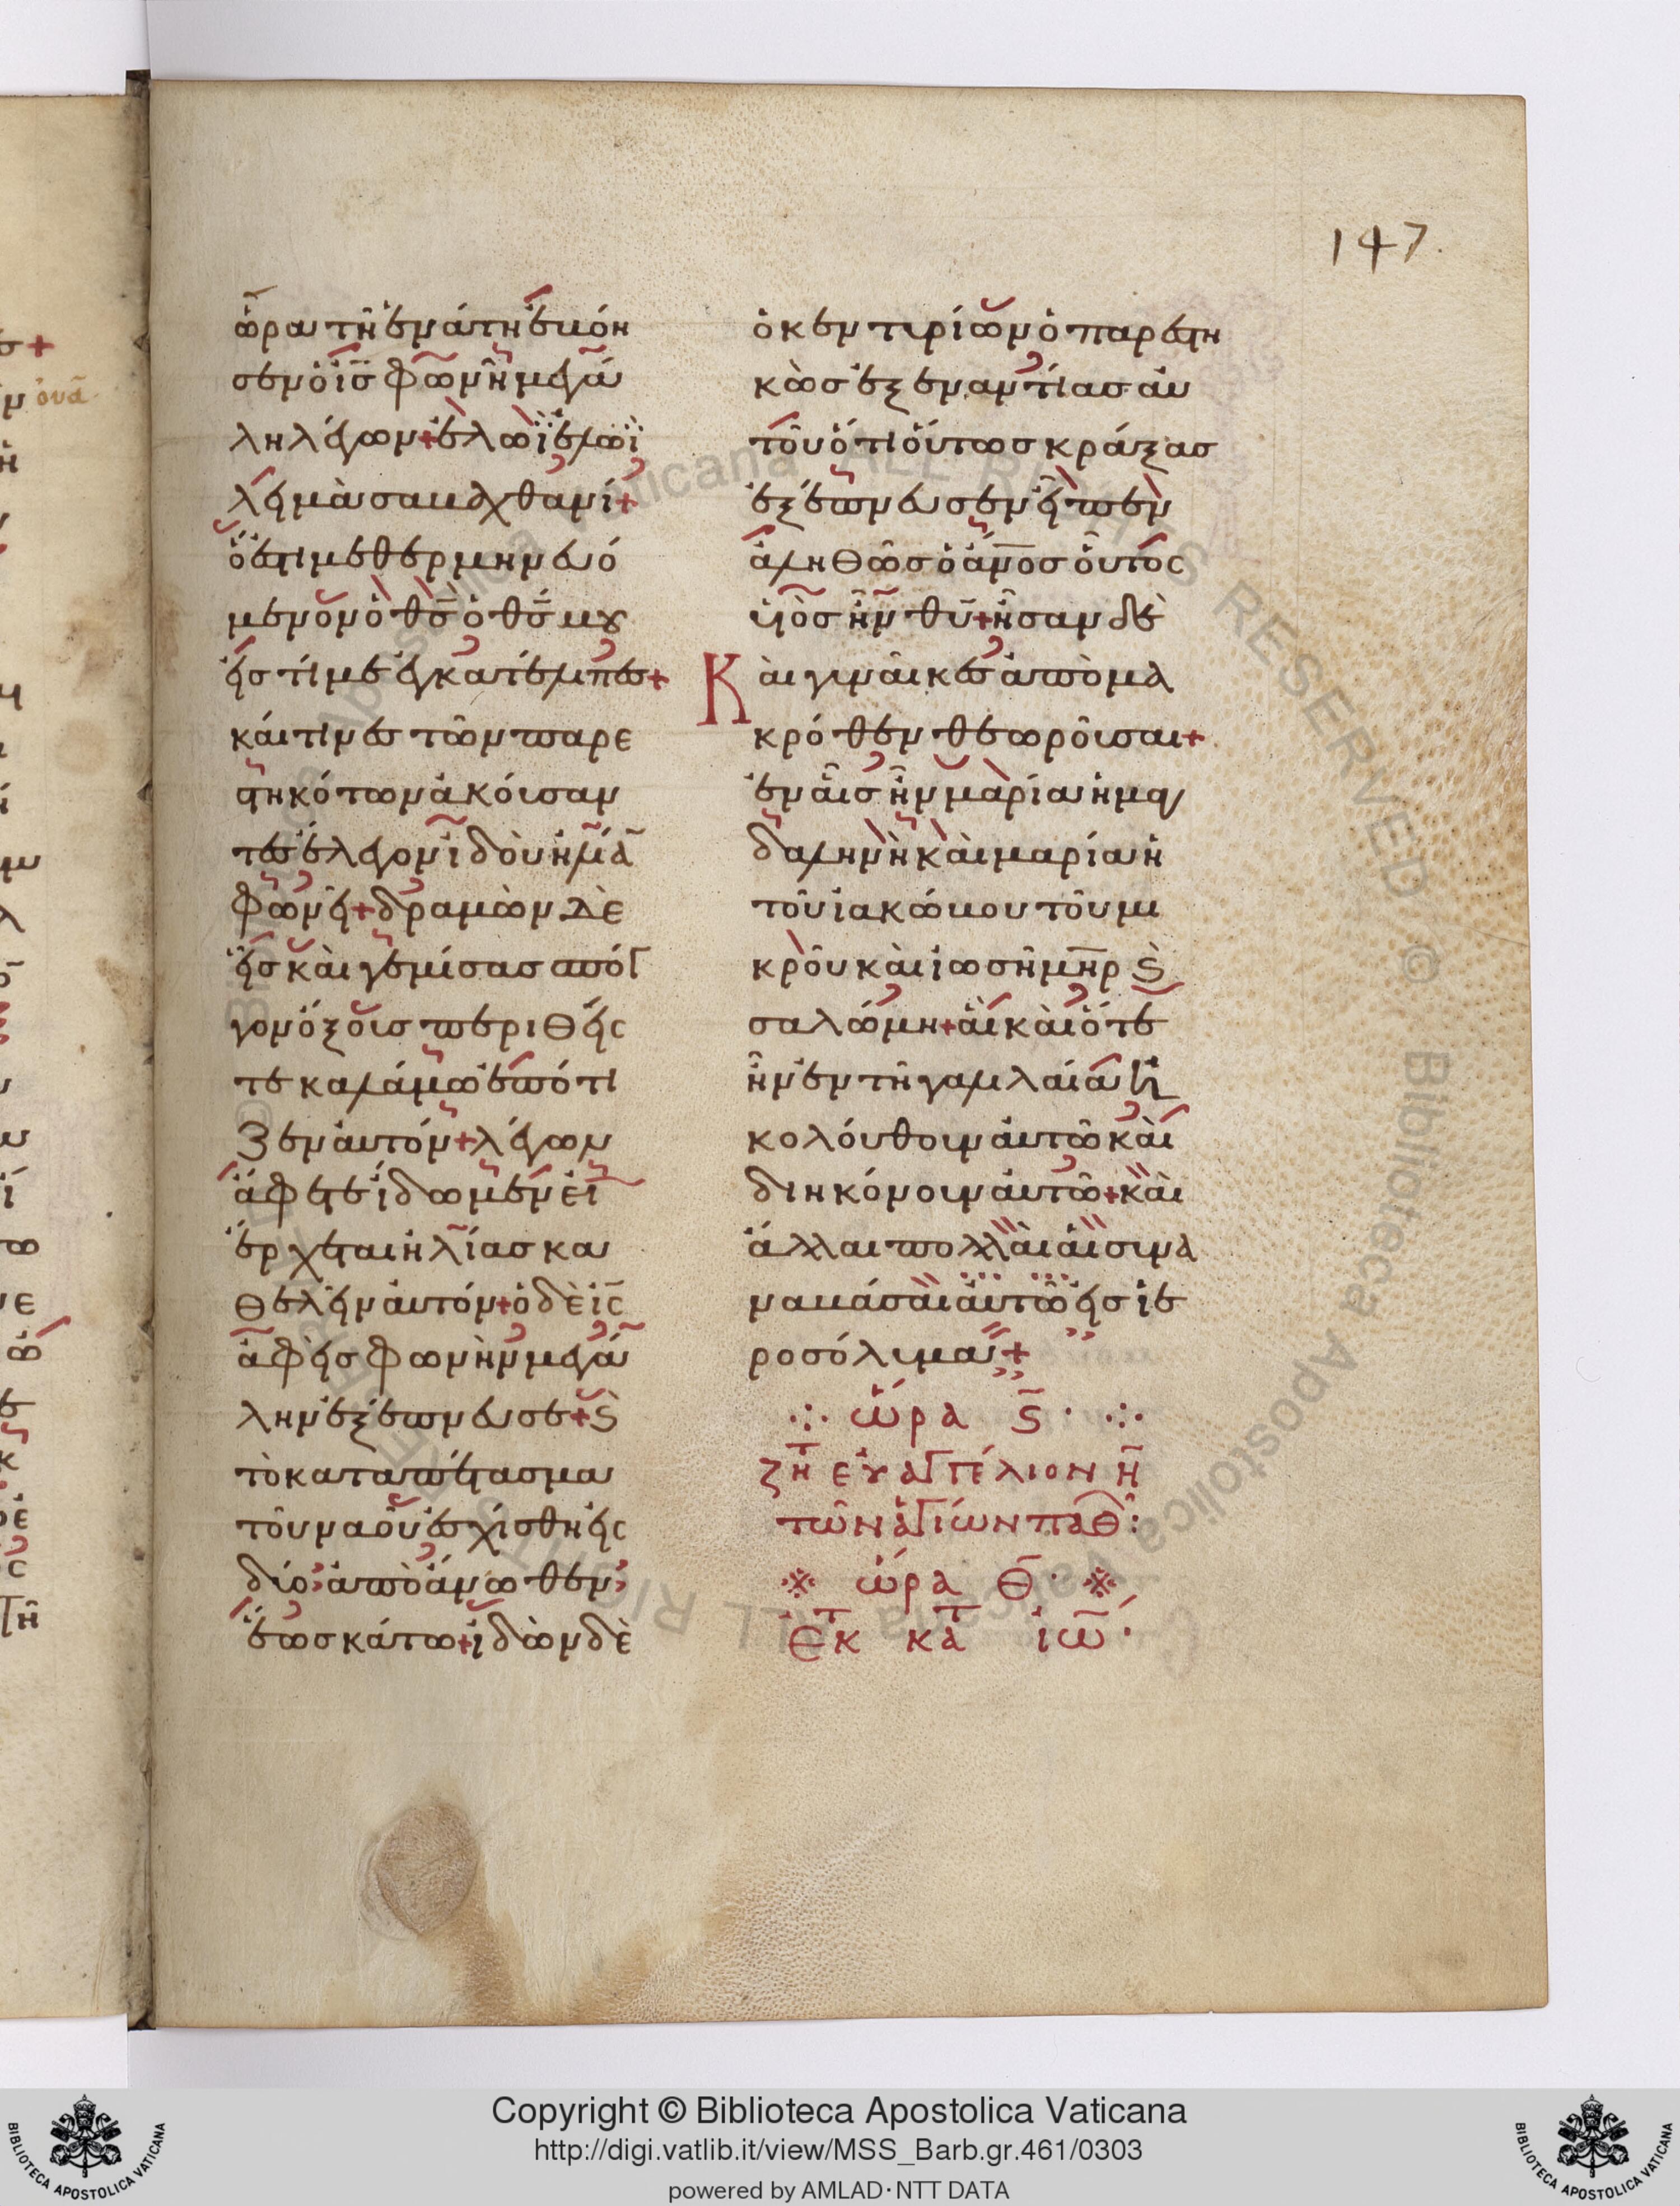 147.
ὥρα τῆ ἐνάτη ἐβόη
σεν ὁ ις φωνῆ μεγά
λη λέγων + ἐλωῒ ἐλωῒ
λεμὰ σαβαχθανί +
ὅ ἐστι μεθερμηνευό
μενον ὁ θς ὁ θς μȣ
εἰς τί με ἐγκατέλιπες +
καί τινες τῶν παρε
στηκότων ἀκόυσαν
τες ἔλεγον ἰδοὺ ἠλίᾱ
φωνεῖ + δραμὼν δὲ
εἷς καὶ γεμίσας σπόγ
γον ὄξους περιθείς
τε καλάμω ἐπότι
ζεν αὐτόν + λέγων
ἄφετε ἴδωμεν εἰ
ἔρχεται ἠλίας κα
θελεῖν αὐτόν + ὁ δὲ ις
ἀφεὶς φωνὴν μεγά
λην ἐξέπνευσε + ϛ̀
τὸ καταπέτασμα
τοῦ ναοῦ ἐσχίσθη εἰς
δύο ἀπὸ ἄνωθεν
ἕως κάτω + ἰδὼν δὲ
ὁ κεντυρίων ὁ παρεστη
κὼς ἐξ εναντίας αὐ
τοῦ ὅτι οὕτως κράξας
ἐξέπνευσεν εἶπεν
ἀληθῶς ὁ ανος οὗτος
υἱὸς ἦν θυ + ἦσαν δὲ
Καὶ γυναῖκες ἀπὸ μα
κρόθεν θεωροῦσαι +
ἐν αἷς ἦν μαρία ἡ μαγ
δαληνὴ καὶ μαρία ἡ
τοῦ ἰακώβου τοῦ μι
κροῦ καὶ ἰωσῆ μηρ ϛ̀
σαλώμη + αἳ καὶ ὅτε
ἦν ἐν τῆ γαλιλαία ἠ
κολούθουν αὐτῶ καὶ
διηκόνουν αὐτῶ + καὶ
ἄλλαι πολλαὶ αἱ συνα
ναβᾶσαι αὐτῶ εἰς ἱε
ροσόλυμα +
ὥρα ϛ̄ ·
ζητ εὐαγγέλιον η̄
τῶν ἁγίων παθ :
ὥρα θ̄ ·
Ἐκ κατ ἰω ·
Copyright © Biblioteca Apostolica Vaticana
http://digi.vatlib.it/view/MSS_Barb.gr.461/0303
powered by AMLAD·NTT DATA